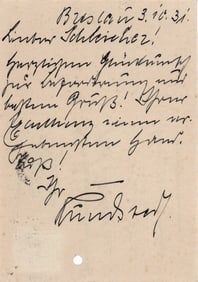 Breslau 3.10.31.
Lieber Schleicher!
Herzlichen Glückwunsch
zur Beförderung und
besten Gruß! Ihrer
Gattin einen er-
gebensten Hand-
kuß!
Ihr
Rundstedt.